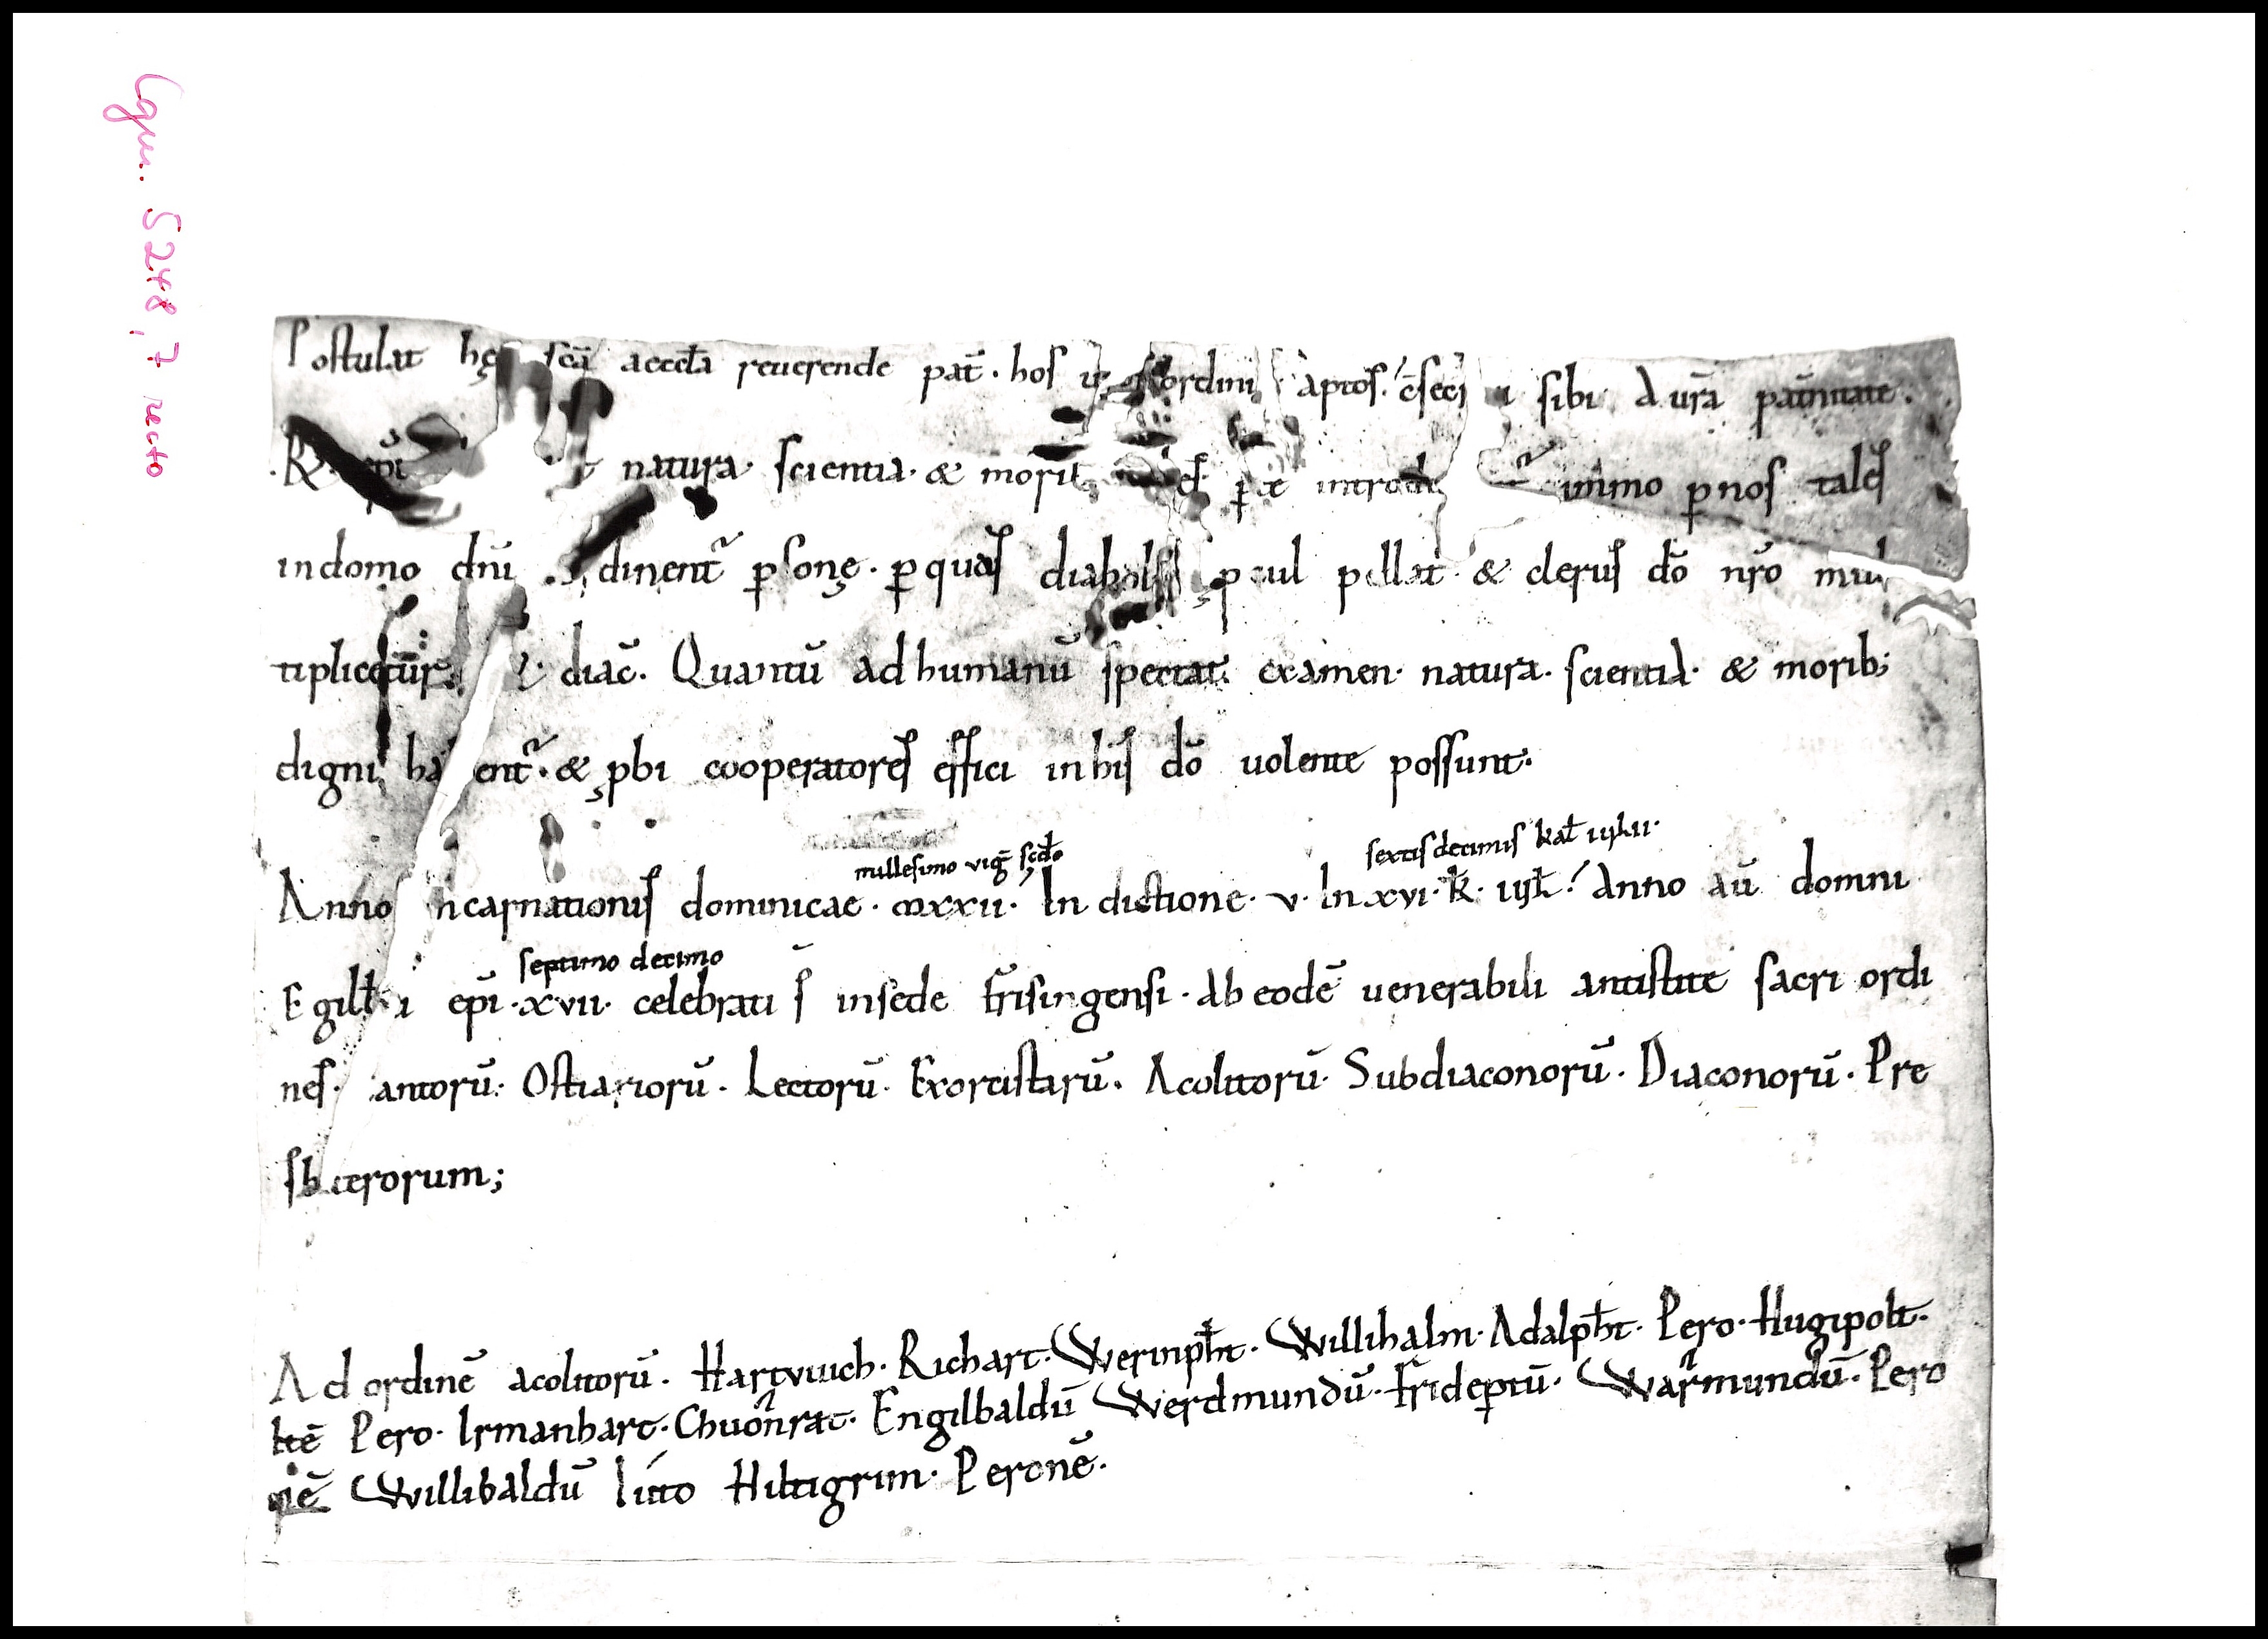 Cgm. 5248, 7 recto
Postulat hę scā aeccła reuerende pat̄ · hos ordini aptos · c̄secrari sibi a urā pat̄nitate .
R̄ ep̄i natura · scientia · & morib; p̄ immo p̱ nos tales
in domo dn̄i dinent̄ p̱sonę · p̱ quas diabolus pcul pellat · & clerus dō nr̄o mul
tiplicetur · diac̄ . Quantū ad humanū spectat examen · natura · scientia · & morib;
digni habent̄ · & p̱bi cooperatores effici in his dō uolente possunt ·
millesimo viḡ scđo sextisdecimis kał iułii ·
Anno incarnationis dominicae · ꝏxxii · Indictione · v · In xvi · k̄ · iuł · Anno aū domni
septimo decimo
Egilb̄ti ep̄i · xvii · celebrati s̄ in sede frisingensi · Ab eodē uenerabili antistite sacri ordi
nes · antorū · Ostiariorū · Lectorū · Exorcistarū · Acolitorū · Subdiaconorū · Diaconorū · Pre
sbiterorum ;
Ad ordinē acolitorū · Hartvuich · Richart · Werinpħt · Willihalm · Adalpħt · Pero · Hugipolt ·
Pero · Irmanhart · Chuonrat · Engilbaldū Werdmundū · Frideptū · Warmundū · Pero
nē Willibaldū liuto Hiltigrim · Peronē ·